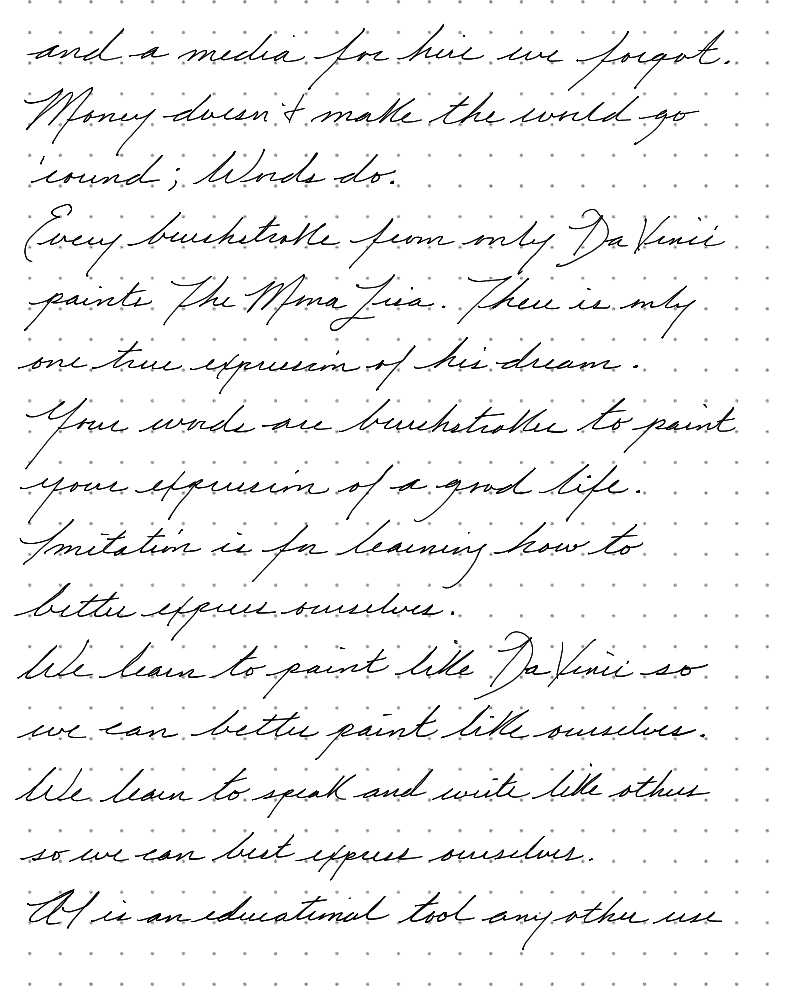 and a media for hire we forgot.
Money doesn't make the world go
'round; Words do.
Every brushstroke from only Da Vinci
paints The Mona Lisa. There is only
one true expression of his dream.
Your words are brushstrokes to paint
your expression of a good life.
Imitation is for learning how to
better express ourselves.
We learn to paint like Da Vinci so
we can better paint like ourselves.
We learn to speak and write like others
so we can best express ourselves.
AI is an educational tool any other use